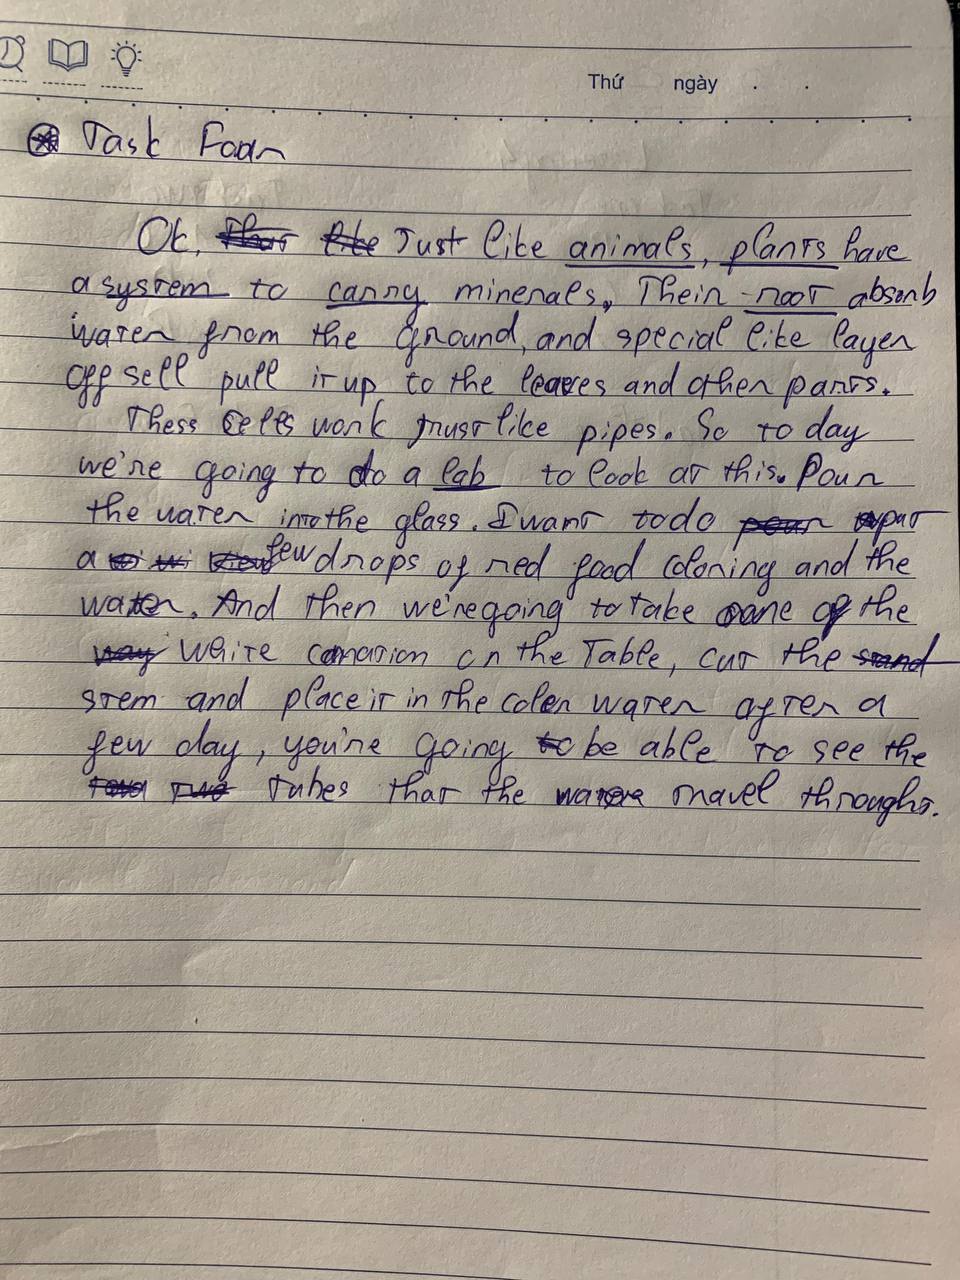 Thứ ngày
Task Foan
Ok, Just like animals, plants have
a system to carry minerals, Their root absorb
water from the ground, and special like layer
off sell pull it up to the leaves and other parts.
Thess Cells work just like pipes. So to day
we're going to do a lab to look at this. Pour
the water into the glass. I want to do put
a few drops of red food coloring and the
water. And then we're going to take one of the
white carnation on the Table, cut the
stem and place it in the coler water after a
few day, you're going to be able to see the
Tubes that the water travel throught.